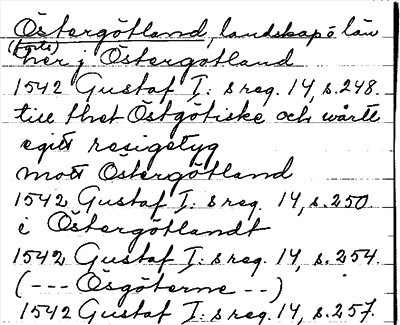 Östergötland, landskap o län
(forts)
her j Östergötland
1542 Gustaf I:s reg. 14, s.248.
till thet Östgötiske och wårtt
egitt resigetyg
mott Östergötland
1542 Gustaf I:s reg. 14, s.250.
i Östergötlandt
1542 Gustaf I:s reg. 14, s.254.
(--- Ösgöterne --)
1542 Gustaf I:s reg. 14, s.257.